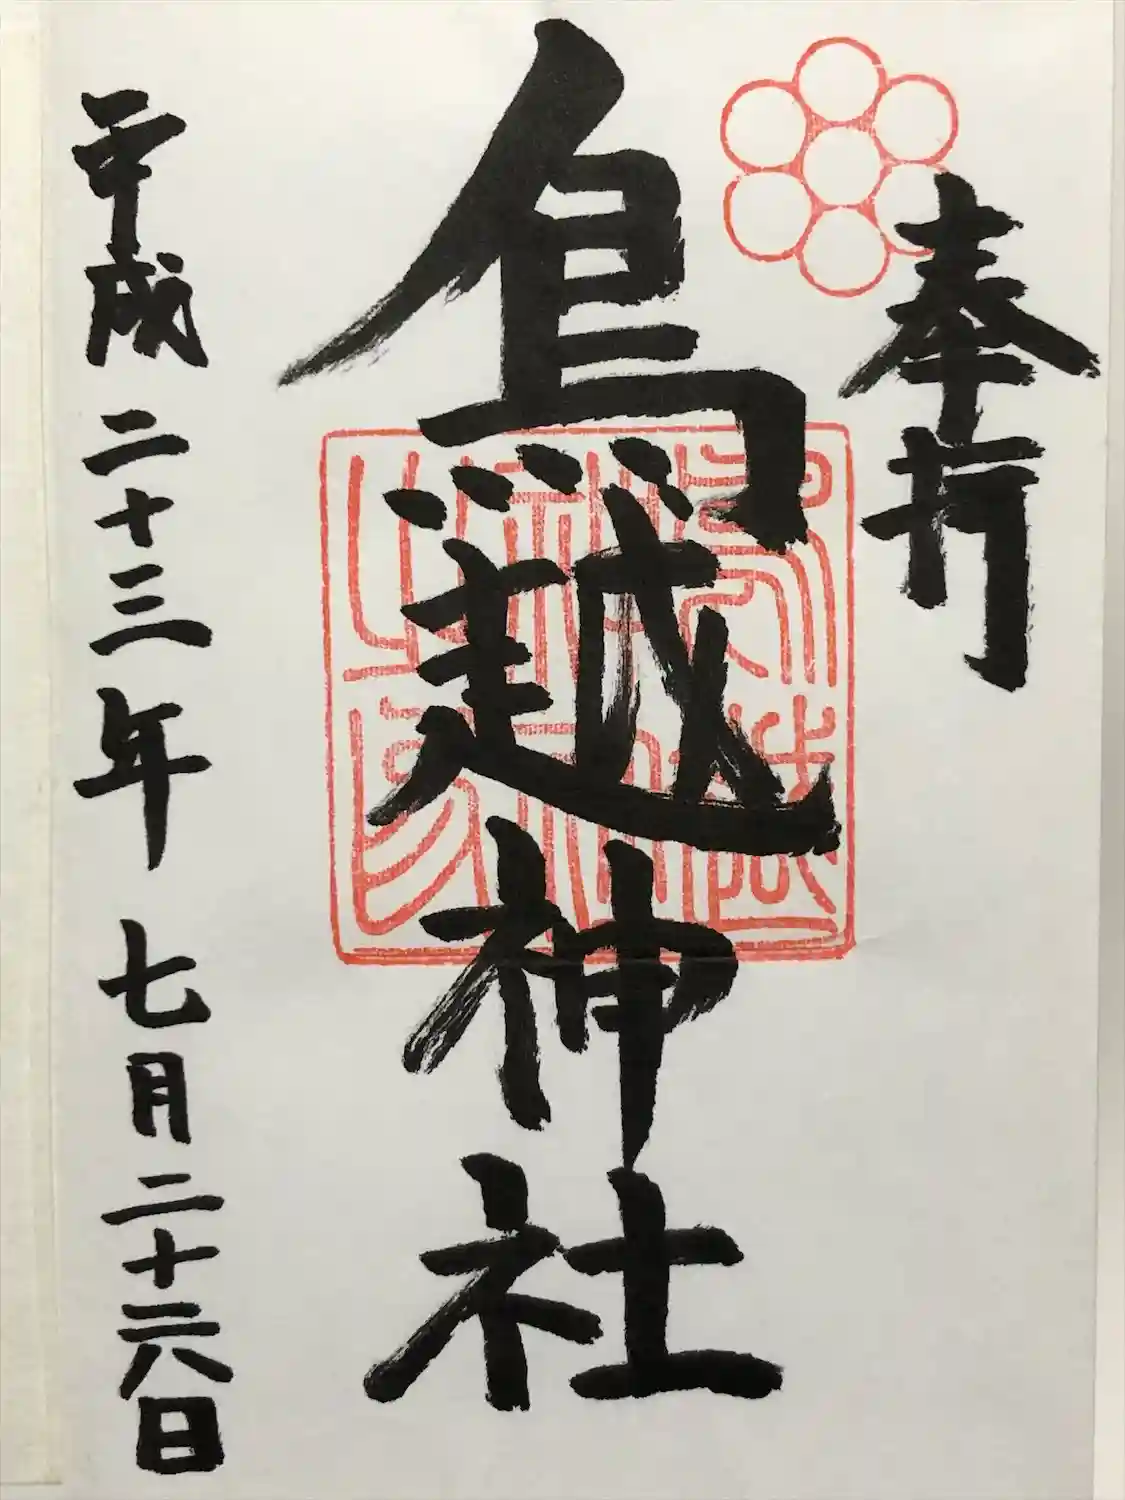 奉拝
鳥越神社
平成二十三年七月二十六日